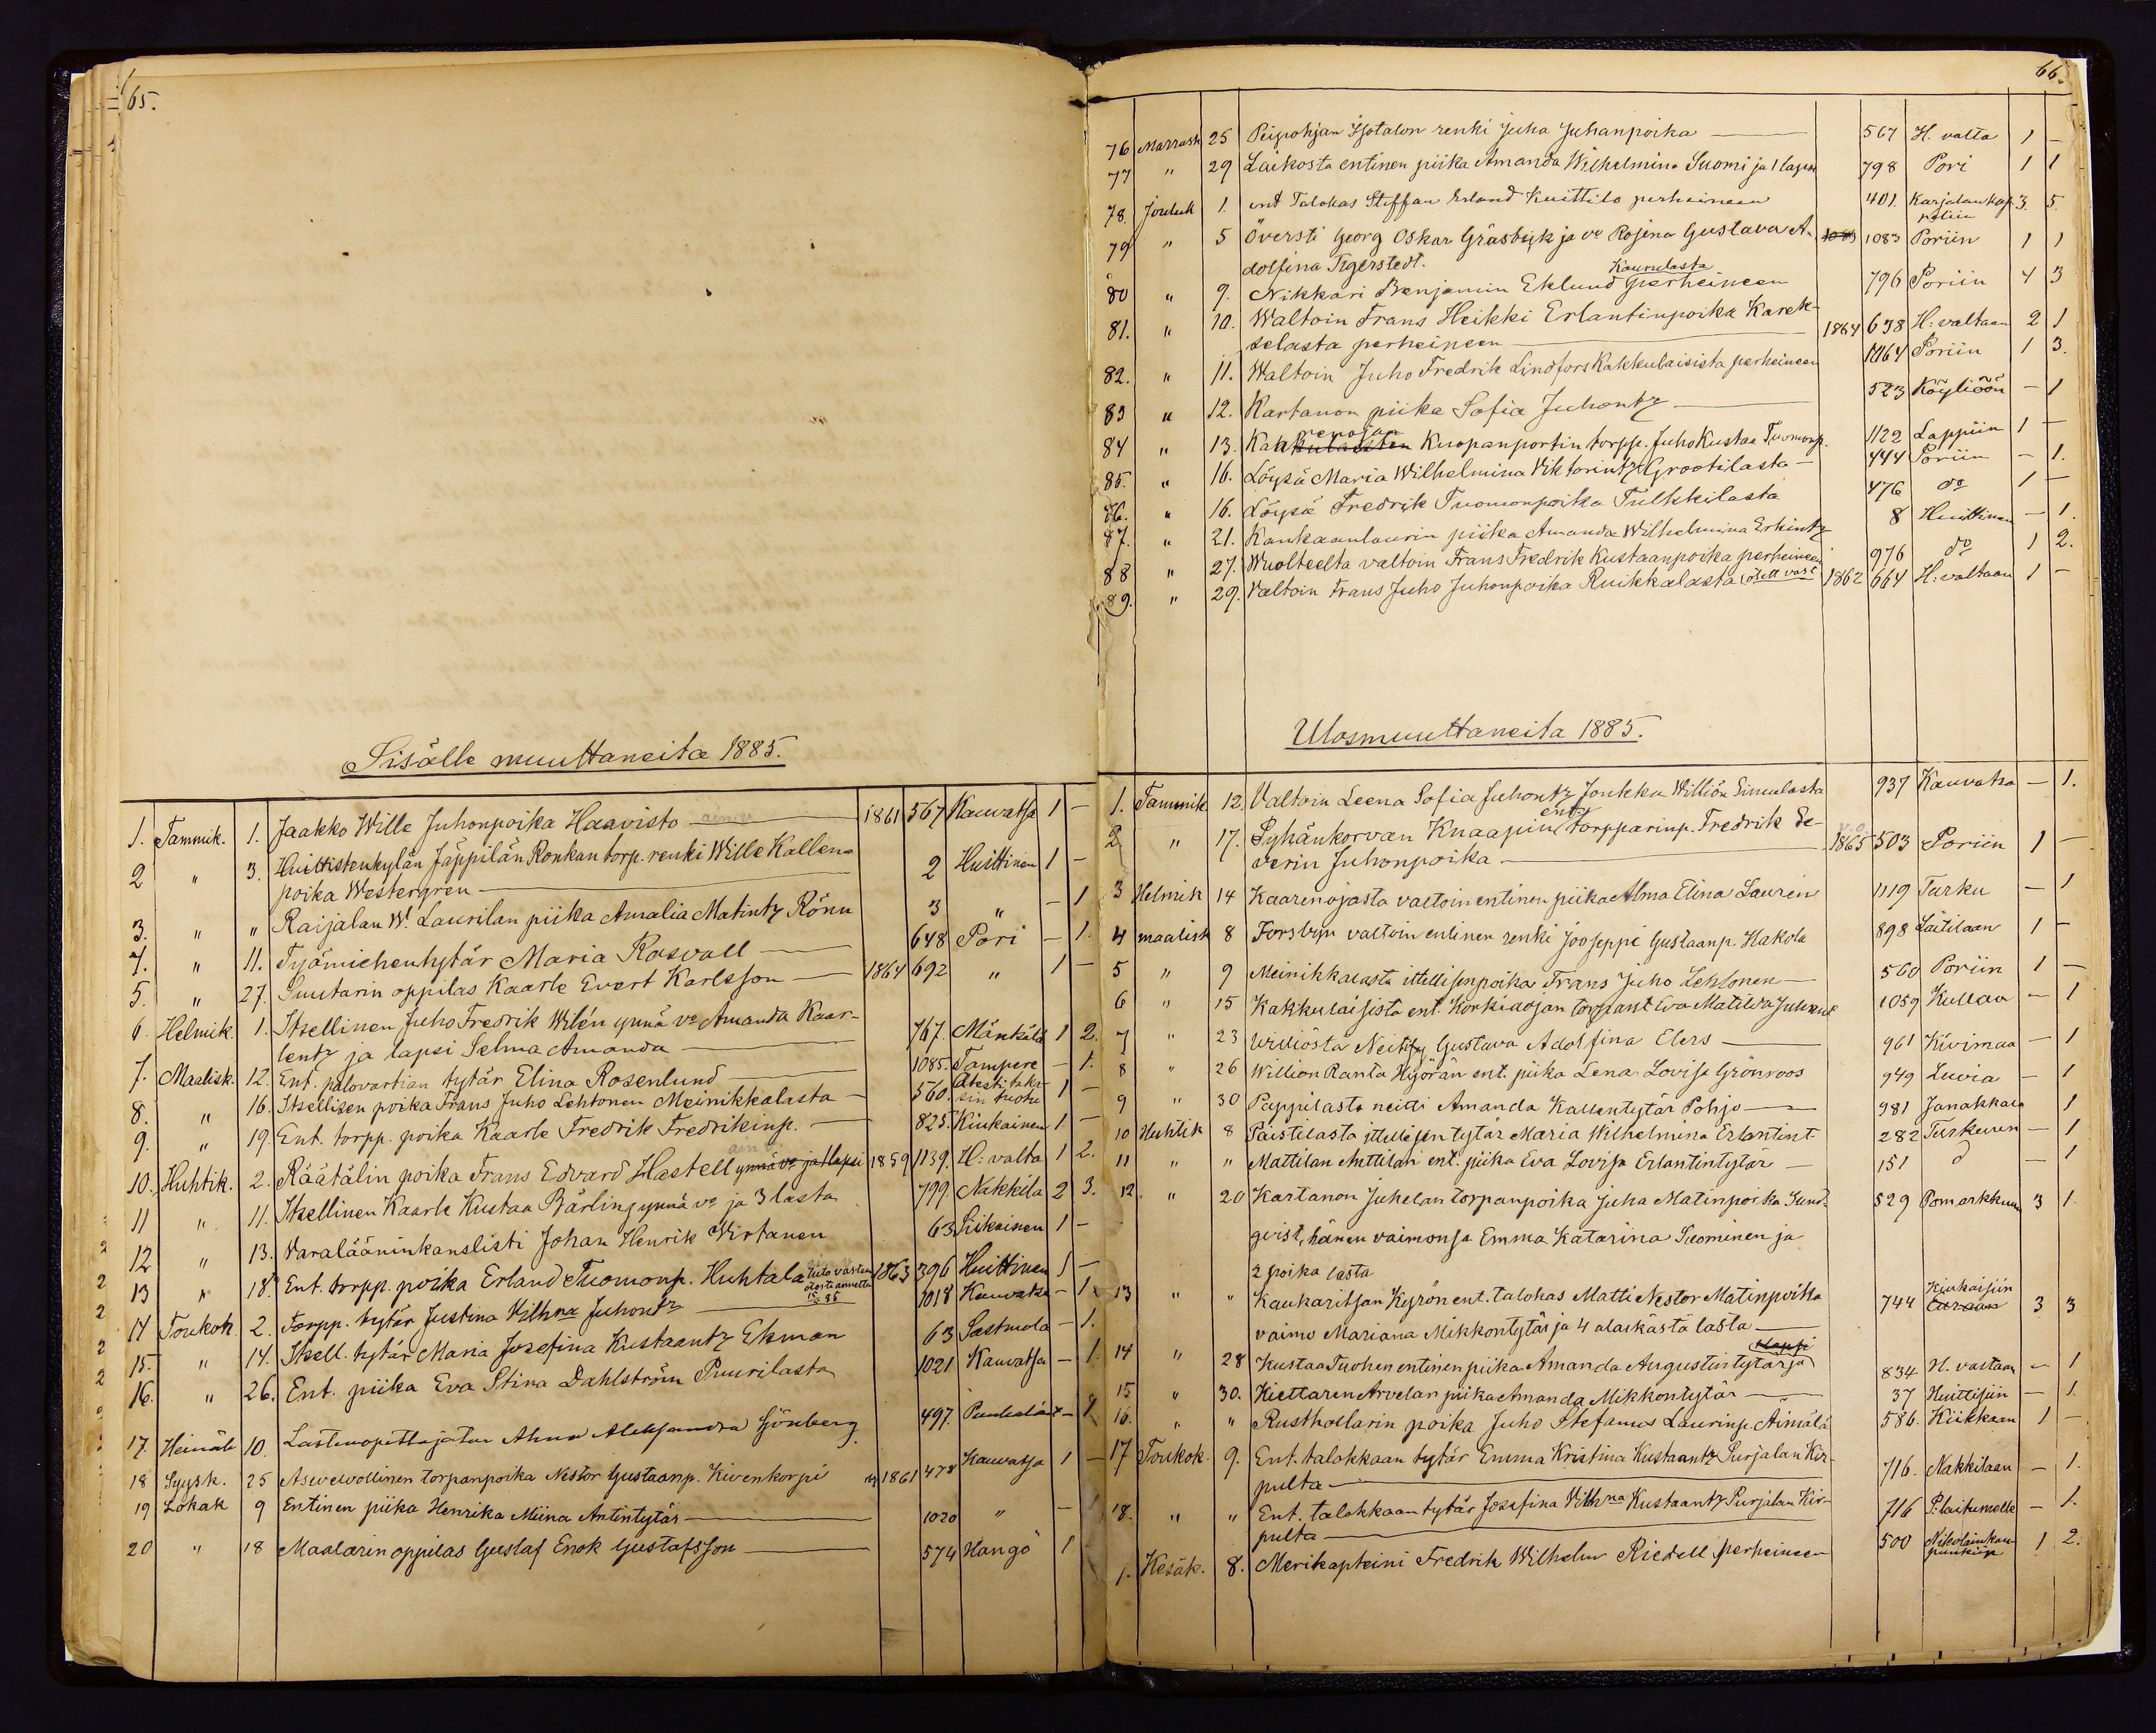 65.
Sisälle muuttaneita 1885.
1. Tammik. 1. Jaakko Wille Juhonpoika Haavisto 1861 567 Kauvatsa 1 –
2 " 3. Huittistenkylän Jäppilän Ronkan torp. renki Wille Kallen-
poika Westergren — 2 Huittinen 1 –
3. " " Raijalan W. Laurilan piika Amalia Matintz Rönn 3 " – 1
4. " 11. Työmiehentytär Maria Rosvall — 648 Pori – 1.
5. " 27. Suutarin oppilas Kaarle Evert Karlsson — 1864 692 " 1 –
6. Helmik. 1. Itsellinen Juho Fredrik Wilén ynnä vo Amanda Kaar-
lentz ja lapsi Selma Amanda — 767. Mäntsälä 1 2.
7. Maalisk. 12. Ent. palovartian tytär Elina Rosenlund 1085. Tampere – 1.
8. " 16. Itsellisen poika Frans Juho Lehtonen Meinikkalasta — 560. 1 –
9. " 19. Ent. torpp. poika Kaarle Fredrik Fredrikinp. — 825. Kiukainen 1. –
10. Huhtik. 2. Räätälin poika Frans Edvard Hastell ynnä vo ja 1 lapsi 1859 1139. H: valta 1 2.
11 " 11. Itsellinen Kaarle Kustaa Bärling ynnä vo ja 3 lasta 799. Nakkila 2 3.
12 " 13. Varalääninkanslisti Johan Henrik Wirtanen 63 Siikainen 1 –
13 " 18. Ent. torpp. poika Erland Tuomonp. Huhtala 1863 396 Huittinen 1 –
14 Toukok. 2. Torpp. tytär Justina Vilhna Juhontz — 1018 Kauvatsa – 1
15. " 14. Itsell. tytär Maria Josefina Kustaantz Ekman 63 Sastmola – 1.
16. " 26. Ent. piika Eva Stina Dahlström Puurilasta 1021 Kauvatsa – 1.
17. Heinäk 10. Lastenopettajatar Alma Aleksandra Sjönberg 497. – 1
18 Syysk. 25 Asevelvollinen torpanpoika Nestor Gustaanp. Kivenkorpi 1861 478 Kauvatsa 1 –
19 Lokak 9 Entinen piika Henrika Miina Antintytär — 1020 " – 1
20 " 18 Maalarin oppilas Gustaf Enok Gustafsson — 574 Hangö 1
66.
76 Marrask 25 Peipohjan Isotalon renki Juha Juhanpoika — 567 H. valta 1 –
77 " 29 Laikosta entinen piika Amanda Wilhelmina Suomi ja 1 lapsi 798 Pori 1 1
78. Jouluk 1. ent Talokas Steffan Erland Knittilo perheineen 401. 3. 5.
79 " 5 Översti Georg Oskar Gräsbäck ja vo Rosina Gustava A- 1083 1083 Poriin 1 1
dolfina Tigerstedt.
80 " 9. Nikkari Benjamin Eklund Kaurulasta perheineen 796 Poriin 4 3
81. " 10. Waltoin Frans Heikki Erlantinpoika Karek-
selasta perheineen — 1864 638 H: valtaan 2 1
82. " 11. Waltoin Juho Fredrik Lindfors Kakkulaisista perheineen 1064 Poriin 1 3.
83 " 12. Kartanon piika Sofia Juhontz — 523 Köyliöön – 1
84 " 13. Kaarenojan Kuopanportin torpp. Juho Kustaa Tuomonp. 1122 Lappiin 1 –
85. " 16. Löysä Maria Wilhelmina Viktorintz Grootilasta — 444 Poriin – 1.
86. " 16. Löysä Fredrik Tuomonpoika Tulkkilasta 476 do 1 –
87. " 21. Kankaanlaurin piika Amanda Wilhelmina Erkintz 8 Huittinen – 1.
88 " 27. Wuolteelta valtoin Frans Fredrik Kustaanpoika perheineen 976 do 1 2.
89. " 29. Valtoin Frans Juho Juhonpoika Ruikkalasta 1862 664 H: valtaan 1 –
Ulosmuuttaneita 1885.
1. Tammik 12. Valtoin Leena Sofia Juhontz Jonkka Williön Simulasta 937 Kauvatsa – 1.
2 " 17. Pyhänkorvan Knaapin ent. torpparinp. Fredrik Se-
verin Juhonpoika — 1865 503 Poriin 1 –
3 Helmik 14 Kaarenojasta valtoin entinen piika Alma Elina Laurén 1119 Turku – 1
4 maalisk 8 Forsbyn valtoin entinen renki Jooseppi Gustaanp. Hakola 898 Laitilaan 1 –
5 " 9 Meinikkalasta ittellisenpoika Frans Juho Lehtonen — 560 Poriin 1 –
6 " 15 Kakkulaisista ent. Korkiaojan torp. Eva Matilda 1059 Kullaa – 1
7 " 23 Williöstä Neitsy Gustava Adolfina Elers — 961 Kivimaa – 1
8 " 26 Williön Ranta Yijörän ent. piika Lena Lovisa Grönroos 949 Luvia – 1
9 " 30 Pappilasta neitti Amanda Kallentytär Pohjo — 981 Janakkala 1
10 Huhtik 8 Paistilasta ittellisen tytär Maria Wilhelmina Erlantint 282 Turkuun – 1
11 " " Mattilan Anttilan ent. piika Eva Lovisa Erlantintytär — 151 – 1
12. " 20 Kartanon Juhelan torpanpoika Juha Matinpoika Sund-
qvist, hänen vaimonsa Emma Katarina Suominen ja 529 Pomarkkuun 3 1.
2 poika lasta
13 " " Kaukaritsan Kyrön ent. talokas Matti Nestor Matinpoika
vaimo Mariana Mikkontytär ja 4 alaikästä lasta — 744 Kiukaisiin 3 3
14 " 28 Kustaa Tuohen entinen piika Amanda Augustintytär ja 834 H. vastaan – 1
15. " 30. Kiettaren Arvelan piika Amanda Mikkontytär — 37 Huittisiin – 1.
16. " " Rusthollarin poika Juho Stefanus Laurinp. Äimälä 586. Kiikkaan 1 –
17 Toukok. 9. Ent. talokkaan tytär Emma Kristina Kustaantz Purjalan Kir-
pulta — 716. Nakkilaan – 1.
18. " " Ent. talokkaan tytär Josefina Vilhna Kustaantz Purjalan Kir-
pulta — 716 P:laitumelle – 1.
1. Kesäk. 8. Merikapteini Fredrik Wilhelm Riedell perheineen 500 Nikolainkau-
punkiin 1 2.